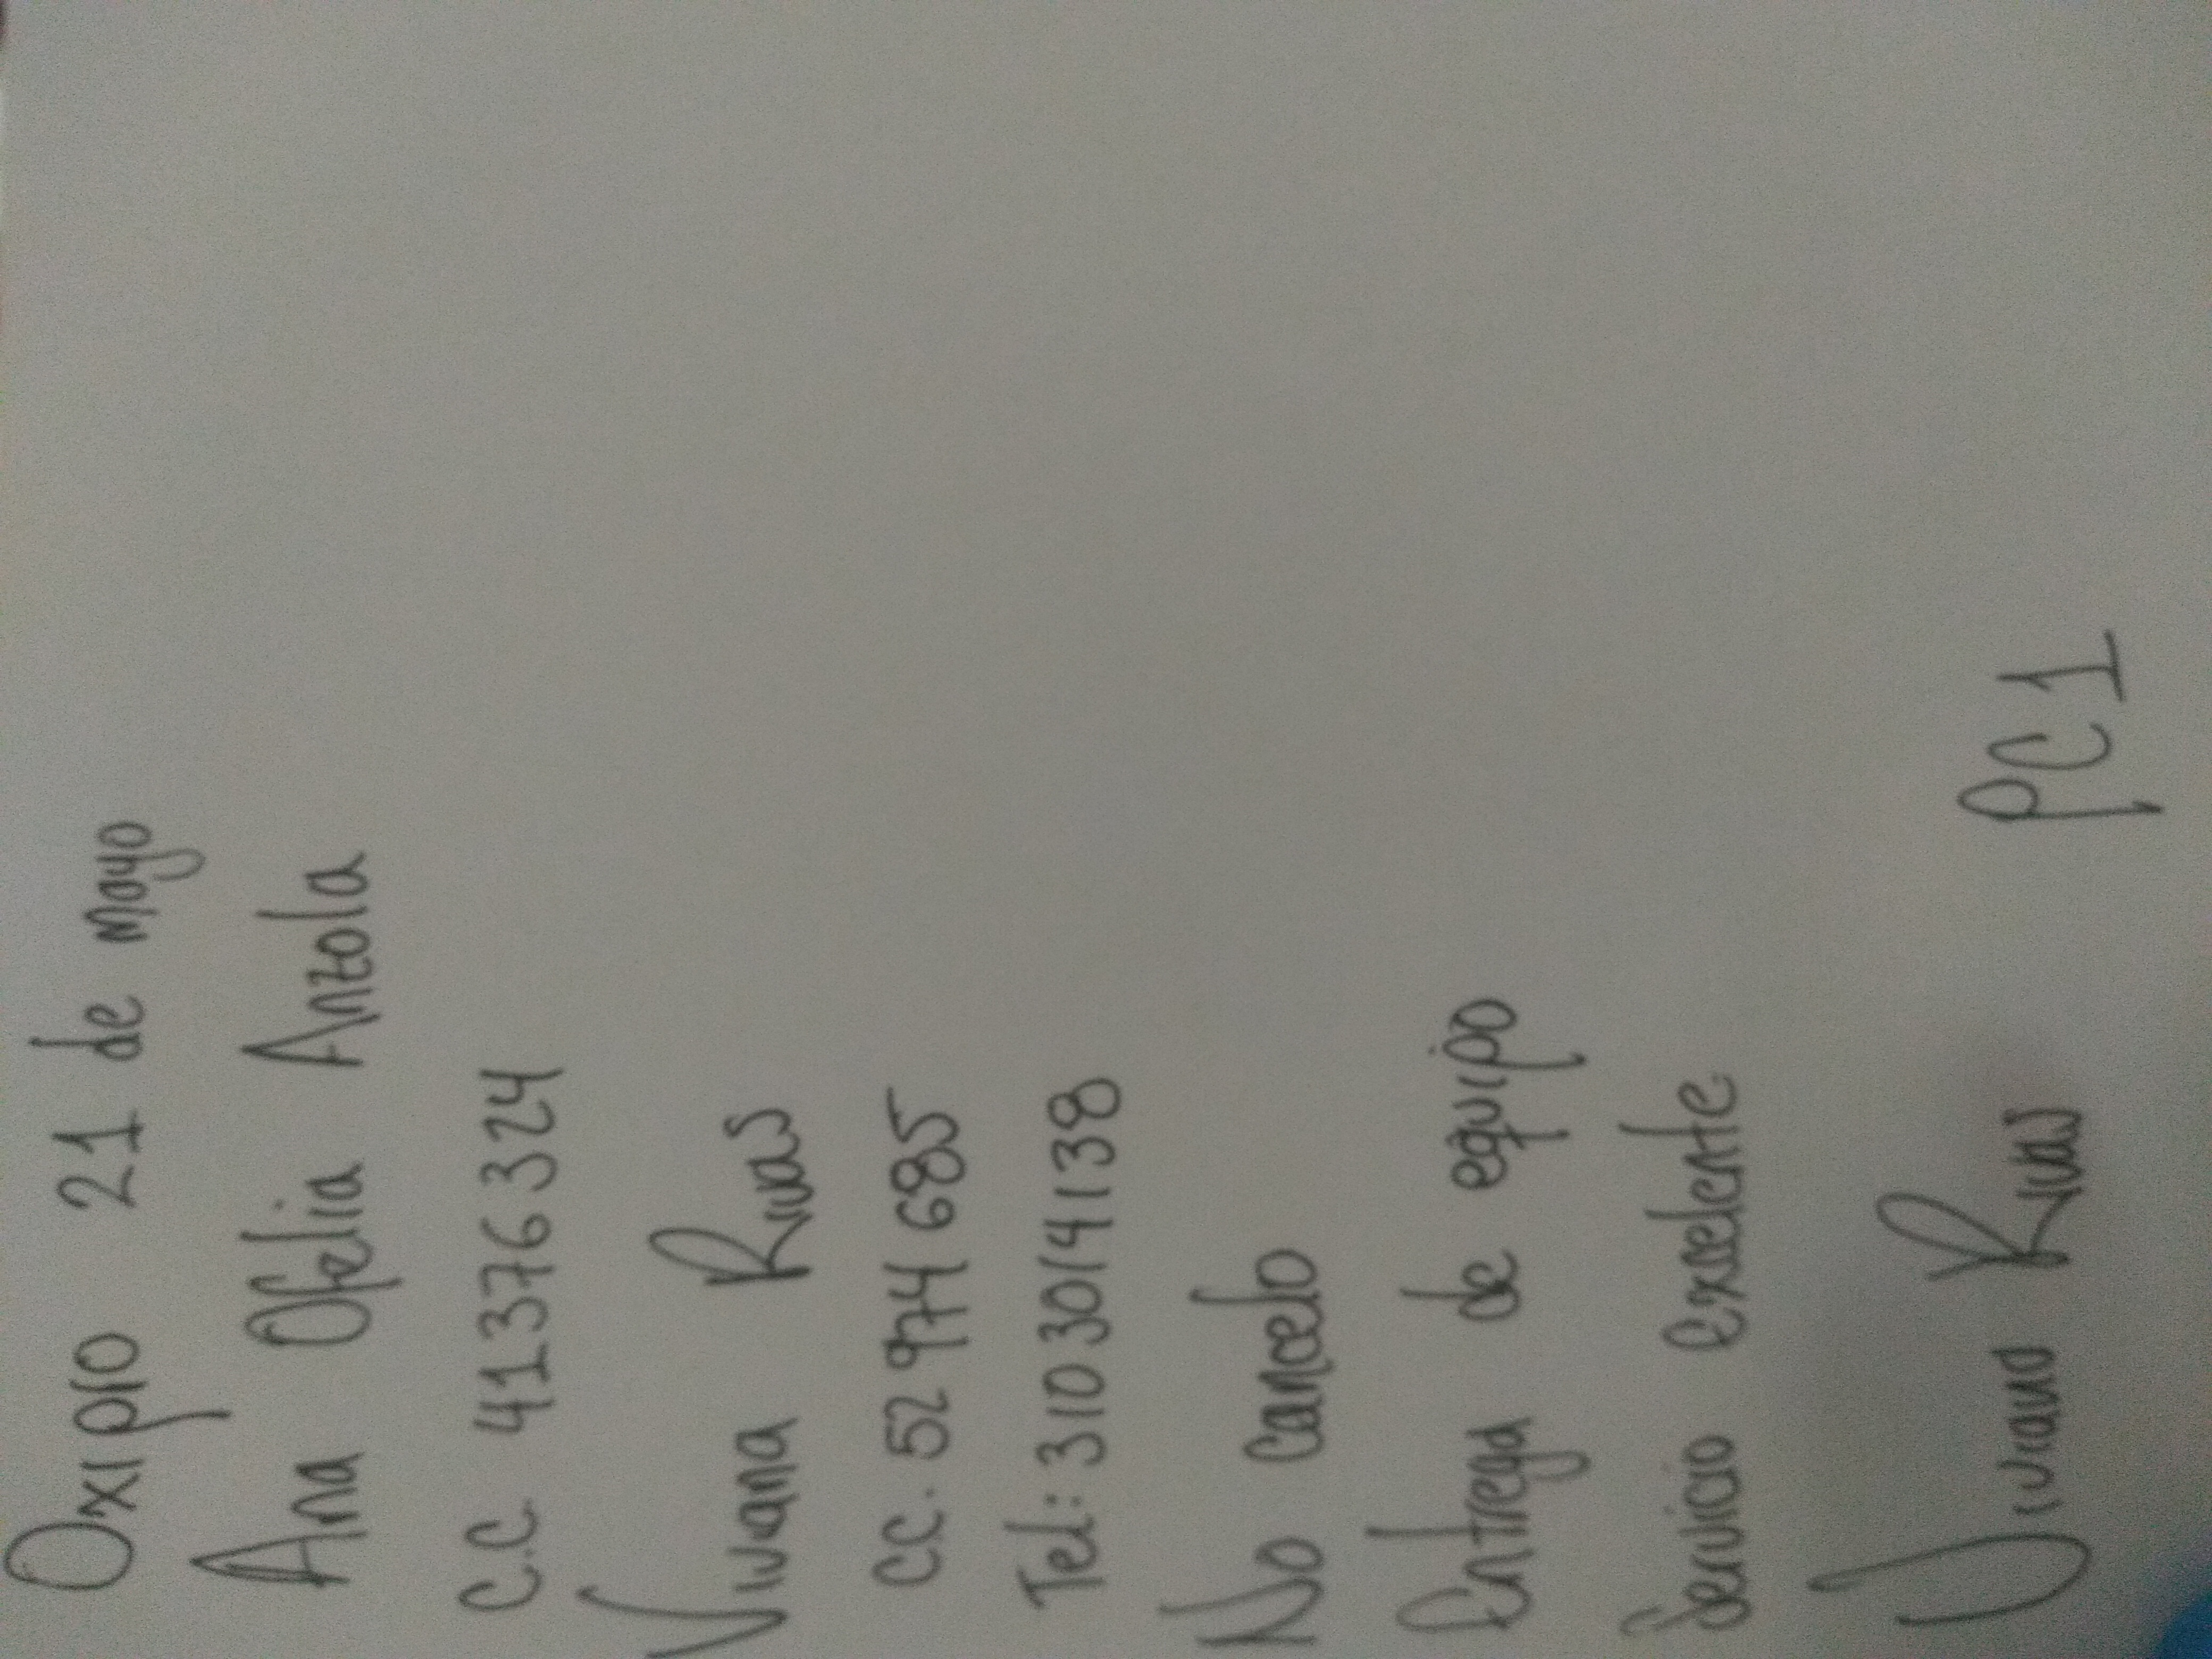 Oxipro 21 de mayo
Ana Ofelia Anzola
C.C 41376324
Viviana Rivas
CC. 52974685
Tel: 3103014138
No cancelo
Entrega de equipo
Servicio excelente
Viviana Rivas PC1